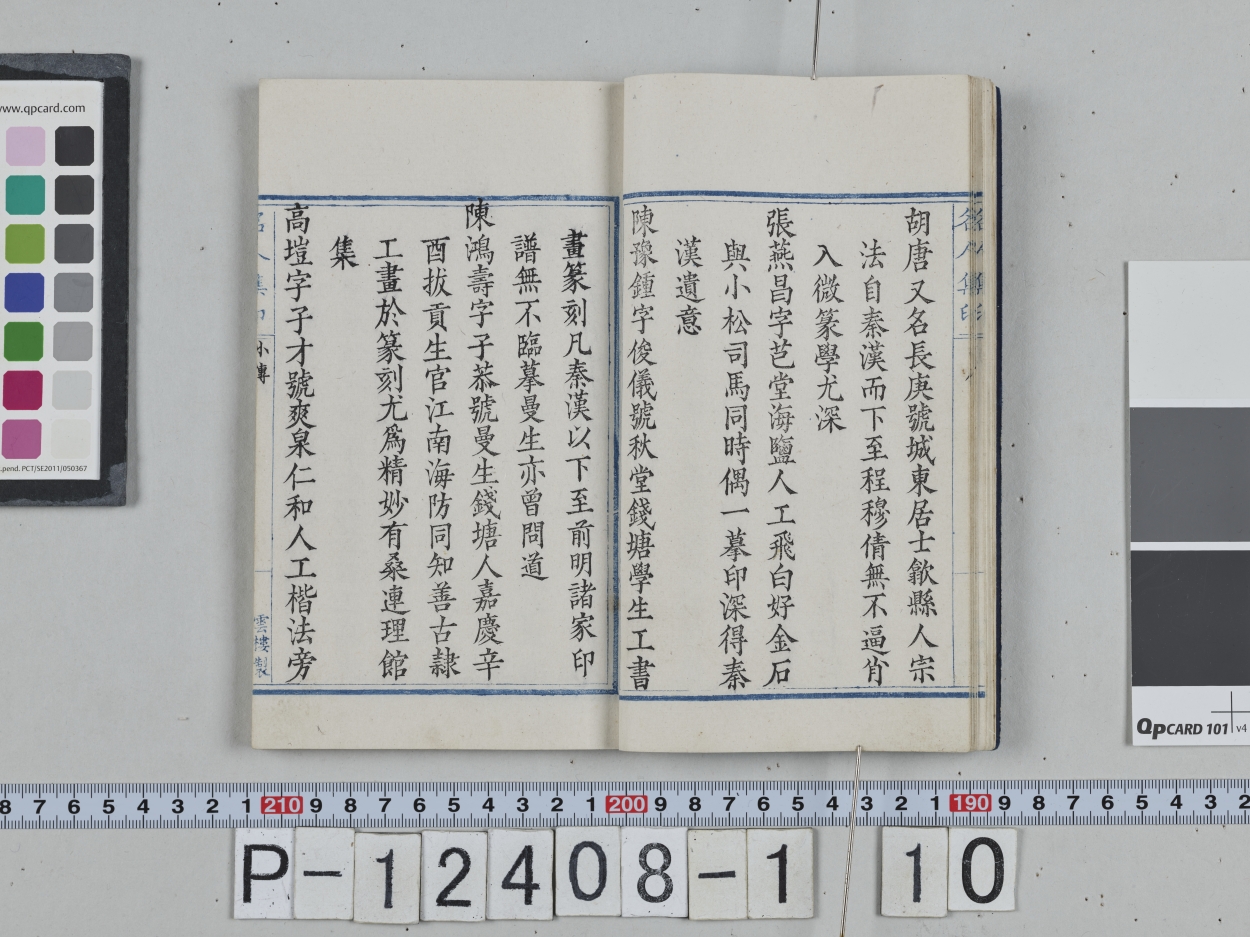 胡唐又名長庚號城東居士歙縣人宗
法自秦漢而下至程穆倩無不逼肖
入微篆學尤深
張燕昌字芑堂海鹽人工飛白好金石
與小松司馬同時偶一摹印深得秦
漢遺意
陳豫鍾字俊儀號秋堂錢塘學生工書
畫篆刻凡秦漢以下至前明諸家印
譜無不臨摹曼生亦曾問道
陳鴻壽字子恭號曼生錢塘人嘉慶辛
酉拔貢生官江南海防同知善古隸
工畫於篆刻尤爲精妙有桑連理館
集
高塏字子才號爽泉仁和人工楷法旁
小傳
雲樓製
www.qpcard.com
pend. PCT/SE2011/050367
QPCARD 101 v4
8 7 6 5 4 3 2 1 210 9 8 7 6 5 4 3 2 1 200 9 8 7 6 5 4 3 2 1 190 9 8 7 6 5 4 3 2
P-12408-1 10